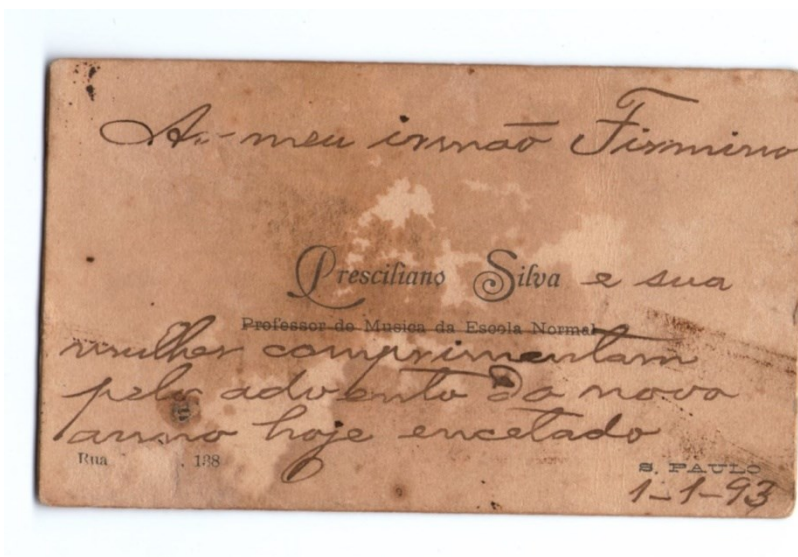 Ao meu irmão Firmino
Presciliano Silva e sua
Professor de Musica da Escola Normal
mulher comprimentam
pelo advento do novo
anno hoje encetado
Rua , 138
S. PAULO
1-1-93